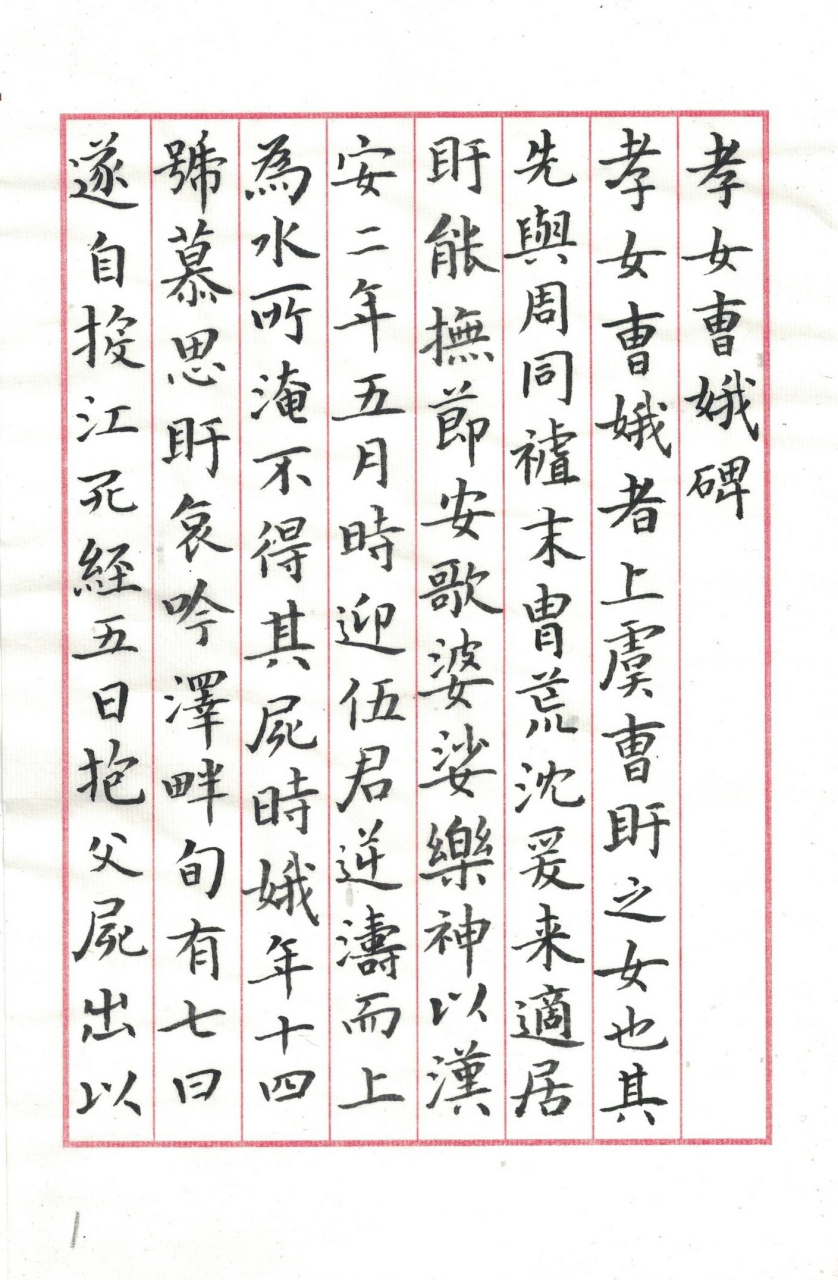 孝女曹娥碑
孝女曹娥者上虞曹盱之女也其
先與周同禃末胄荒沈爰来適居
盱能撫節安歌婆娑樂神以漢
安二年五月時迎伍君逆濤而上
為水所淹不得其屍時娥年十四
號慕思盱哀吟澤畔旬有七日
遂自投江死経五日抱父屍出以
1